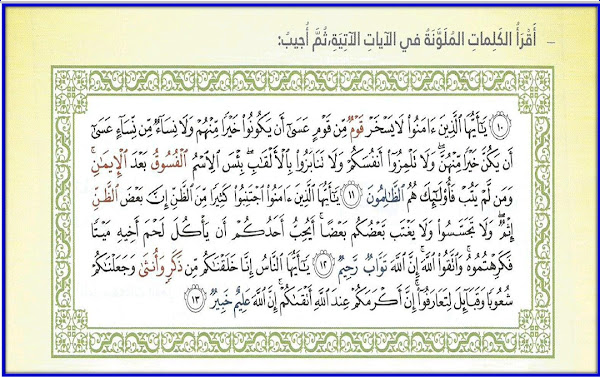 – أَقْرَأُ الكَلِماتِ المُلَوَّنَةَ في الآياتِ الآتِيَةِ، ثُمَّ أُجيبُ:
١٠ يَٰٓأَيُّهَا ٱلَّذِينَ ءَامَنُواْ لَا يَسْخَرْ قَوْمٌ مِّن قَوْمٍ عَسَىٰٓ أَن يَكُونُواْ خَيْرًا مِّنْهُمْ وَلَا نِسَآءٌ مِّن نِّسَآءٍ عَسَىٰٓ
أَن يَكُنَّ خَيْرًا مِّنْهُنَّ ۖ وَلَا تَلْمِزُوٓاْ أَنفُسَكُمْ وَلَا تَنَابَزُواْ بِٱلْأَلْقَٰبِ ۖ بِئْسَ ٱلِٱسْمُ ٱلْفُسُوقُ بَعْدَ ٱلْإِيمَٰنِ ۚ
وَمَن لَّمْ يَتُبْ فَأُوْلَٰٓئِكَ هُمُ ٱلظَّٰلِمُونَ ١١ يَٰٓأَيُّهَا ٱلَّذِينَ ءَامَنُواْ ٱجْتَنِبُواْ كَثِيرًا مِّنَ ٱلظَّنِّ إِنَّ بَعْضَ ٱلظَّنِّ
إِثْمٌ ۖ وَلَا تَجَسَّسُواْ وَلَا يَغْتَب بَّعْضُكُم بَعْضًا ۚ أَيُحِبُّ أَحَدُكُمْ أَن يَأْكُلَ لَحْمَ أَخِيهِ مَيْتًا
فَكَرِهْتُمُوهُ ۚ وَٱتَّقُواْ ٱللَّهَ ۚ إِنَّ ٱللَّهَ تَوَّابٌ رَّحِيمٌ ١٢ يَٰٓأَيُّهَا ٱلنَّاسُ إِنَّا خَلَقْنَٰكُم مِّن ذَكَرٍ وَأُنثَىٰ وَجَعَلْنَٰكُمْ
شُعُوبًا وَقَبَآئِلَ لِتَعَارَفُوٓاْ ۚ إِنَّ أَكْرَمَكُمْ عِندَ ٱللَّهِ أَتْقَىٰكُمْ ۚ إِنَّ ٱللَّهَ عَلِيمٌ خَبِيرٌ ١٣